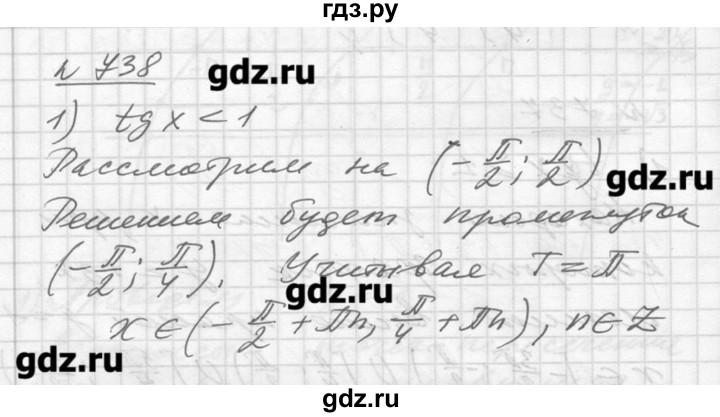 гдз.ру
n 738 gdz.ru
1) tg x < 1
Рассмотрим на (-π/2; π/2) gdz.ru
Решением будет промежуток
(-π/2; π/4). Учитывая T = π
gdz.ru
x ∈ (-π/2 + πn, π/4 + πn), n ∈ Z
gdz.ru
gdz.ru